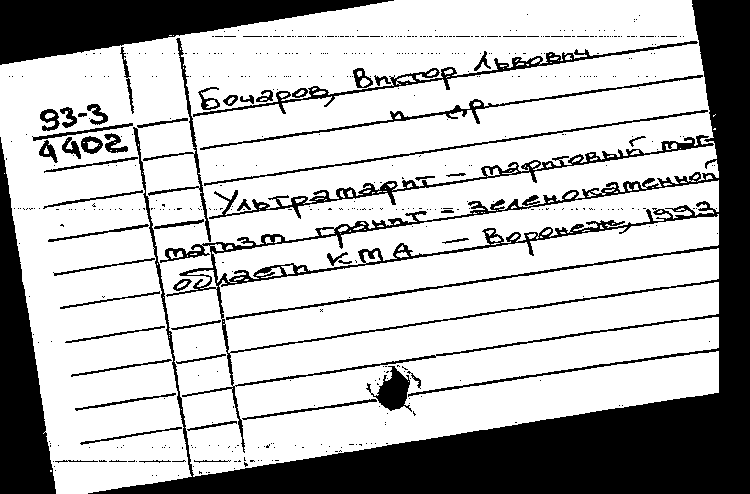 93-3
4402
Бочаров, Виктор Львович
и др.
Ультрамафит - мафитовый маг-
матизм гранит - зеленокаменной
области КМА. - Воронеж, 1993